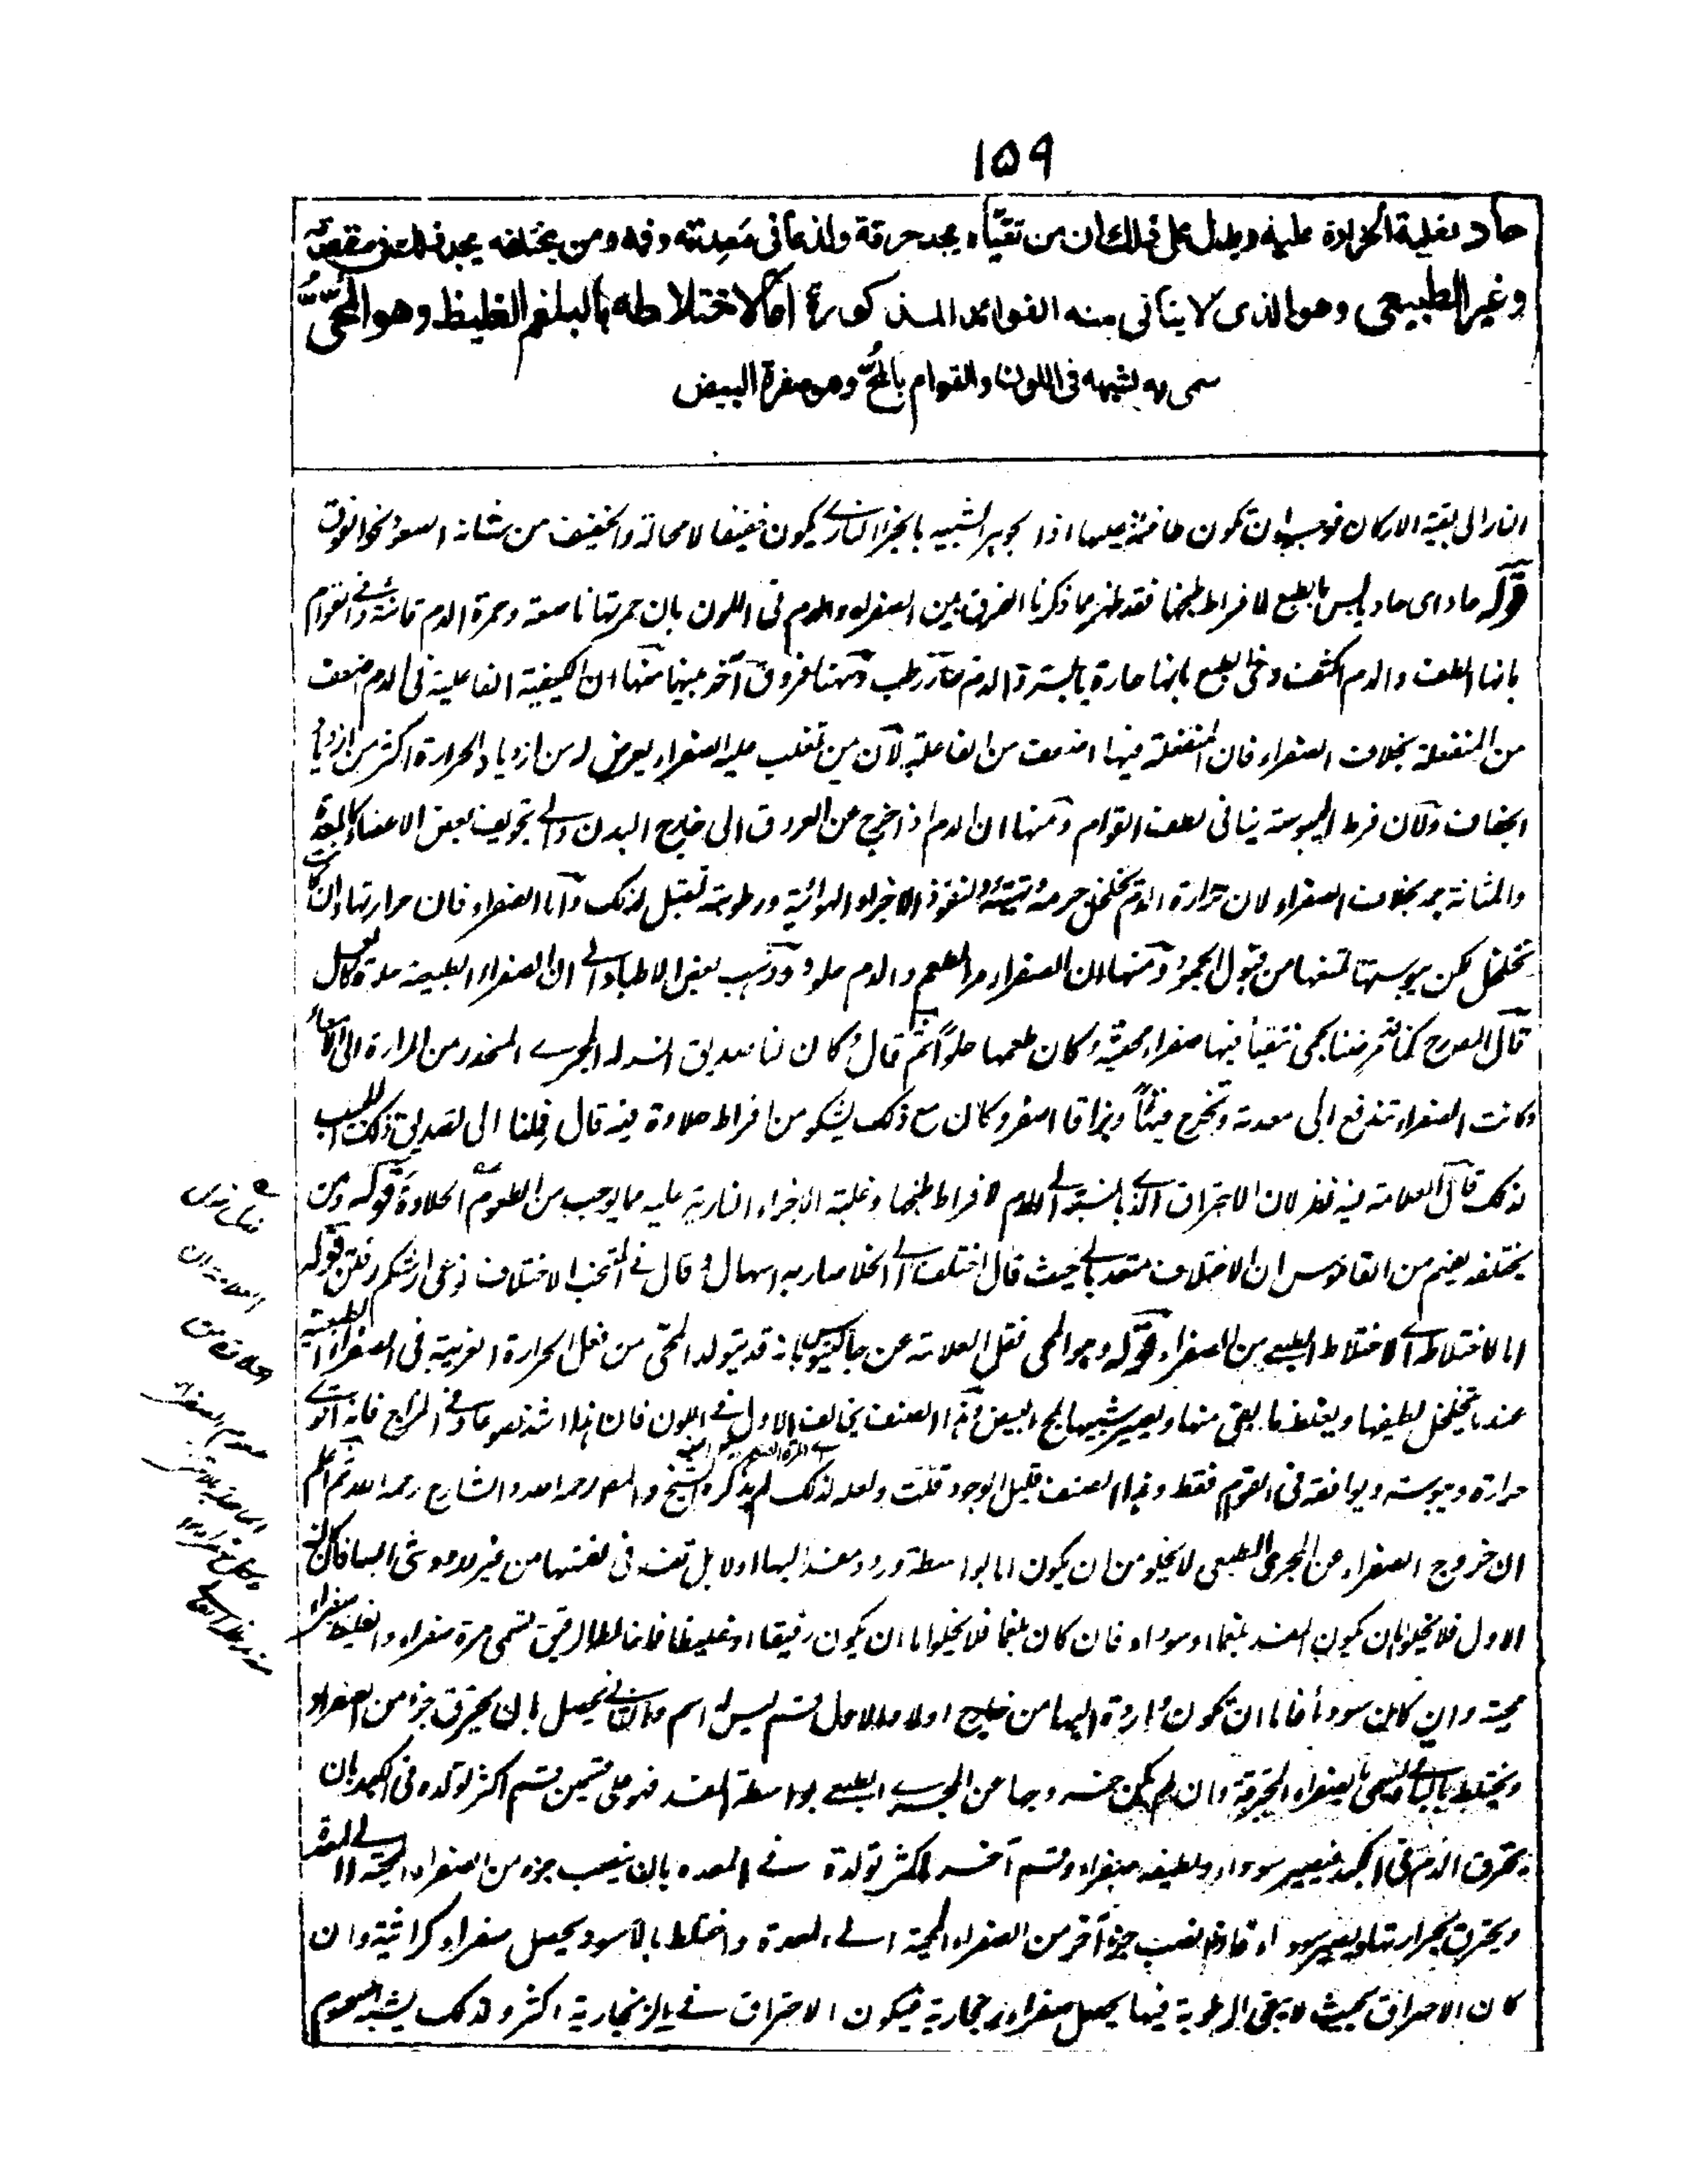 ١٥٩
حاد لغلبة الحرارة عليه ويدل على ذلك ان من تقيأه يجد حرقة ولذعا فى معدته وفمه ومن يختلفه يجد ذلك فى مقعدته
وغير الطبيعى وهو الذى لا يتأتى منه الفوائد المذكورة اما لاختلاطه بالبلغم الغليظ وهو المحّىّ
سمى به لشبهه فى اللون والقوام بالمحّ وهو صفرة البيض
النار الى بقية الاركان فوجب ان تكون طافئة عليها اذا لجوهر الشبيه بالجزء النارى يكون خفيفا لا محالة والخفيف من شانه الصعود نحو الفوق
قوله حاد اى حاد يابس بالطبع لافراط طبخها فقد ظهر مما ذكرنا الفرق بين الصفراء والدم فى اللون بان حمرتها ناصعة وحمرة الدم قانئة وفى القوام
بانها الطف والدم اكثف وفى الطبع بانها حارة يابسة والدم حار رطب وههنا فروق آخر بينهما منها ان الكيفية الفاعلية فى الدم اضعف
من المنفعلة بخلاف الصفراء فان المنفعلة فيها اضعف من الفاعلة لان من تغلب عليه الصفراء يعرض له من ازدياد الحرارة اكثر من ازدياد
الجفاف ولان فرط اليبوسة ينافى لطف القوام ومنها ان الدم اذا خرج من العروق الى خارج البدن والى تجويف بعض الاعضاء كالمعدة
والمثانة جمد بخلاف الصفراء لان حرارة الدم تخلخل جرمه وتهيئه لنفوذ الاجزاء الهوائية ورطوبته تقبل لذلك واما الصفراء فان حرارتها وان كانت
تخلخل لكن يبوستها تمنعها من قبول الجمود ومنها ان الصفراء مر الطعم والدم حلو وذهب بعض الاطباء الى ان الصفراء الطبيعية حلوة كالعسل
قال المسيحى كنا قد مرضنا بحمى نتقيأ فيها صفراء محية وكان طعمها حلوا ثم قال وكان لنا صديق انسد له المجرى المنحدر من المرارة الى الامعاء
وكانت الصفراء تندفع الى معدته وتخرج قيئا وبزاقا اصفر وكان مع ذلك يشكو من افراط حلاوة فيه قال فملنا الى تصديق ذلك الطبيب
لذلك قال العلامة فيه نظر لان الاحتراق الذى بالنسبة الى الدم لافراط طبخها وغلبة الاجزاء النارية عليه مما يوجب من الطعوم الحلاوة قوله ومن
يختلفه يفهم من القاموس ان الاختلاف متعد بالى حيث قال اختلف الى الخلا صار به اسهال وقال فى المنتخب الاختلاف قوله
اما لاختلاطه اى لاختلاط الطبيعى من الصفراء قوله وهو المحى نقل العلامة عن جالينوس بانه قد يتولد المحى من فعل الحرارة الغريبة فى الصفراء الطبيعية
عند ما يتحلل لطيفها ويغلظ ما بقى منها ويصير شبيها بمح البيض وهذا الصنف يخالف الاول فى اللون فان هذا اشد نصوعا وفى المزاج فانه اقوى
حرارة ويبوسة ويوافقه فى القوام فقط وهذا الصنف قليل الوجود قلت ولعله لذلك لم يذكره الشيخ والمص رحمه الله والشارح رحمه الله ثم اعلم
ان خروج الصفراء عن المجرى الطبيعى لا يخلو من ان يكون اما بواسطة ورود مفسد اليها اولا بل تفسد فى نفسها من غير ورود شئ اليها فان كان
الاول فلا يخلو بان يكون المفسد بلغما او سوداء فان كان بلغما فلا يخلو اما ان يكون رقيقا او غليظا فالمخالط الرقيق تسمى مرة صفراء والغليظ صفراء
محية وان كان سوداء فاما ان تكون واردة اليها من خارج اولا والاول قسم ليس له اسم والثانى يحصل بان يحترق جزء من الصفراء
ويختلط بالباقى وتسمى بالصفراء المحترقة وان لم يكن خروجها عن المجرى الطبيعى بواسطة المفسد فهو على قسمين قسم اكثر تولده فى الكبد بان
يحترق الدم فى الكبد فيصير سوداء ولطيفه صفراء وقسم آخر اكثر تولده فى المعدة بان ينصب جزء من الصفراء المحية الى المعدة
ويحترق بحرارتها ويصير سوداء فاذا انصب جزء آخر من الصفراء المحية الى المعدة واختلط بالاسود يحصل صفراء كراثية وان
كان الاحتراق بحيث لا تبقى الرطوبة فيها يحصل صفراء زنجارية فيكون الاحتراق فى الزنجارية اكثر ولذلك يشبه السموم